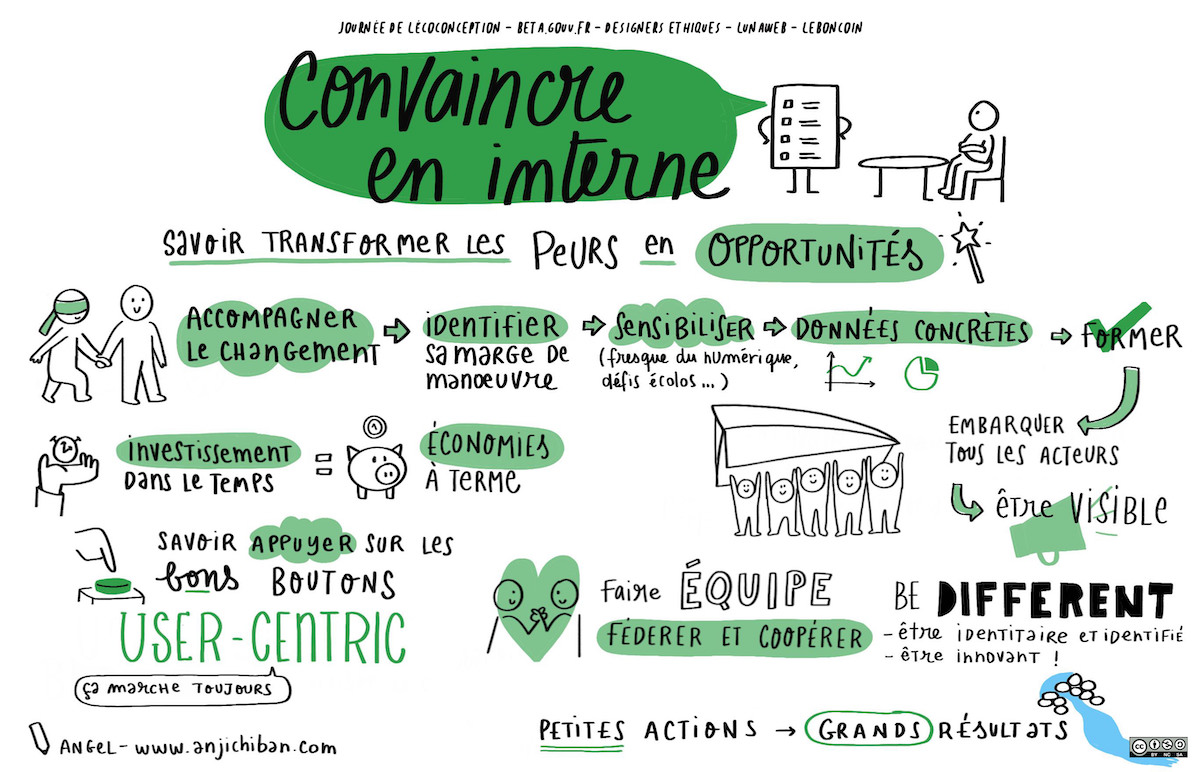 JOURNÉE DE L'ÉCOCONCEPTION - BETA.GOUV.FR - DESIGNERS ETHIQUES - LUNAWEB - LEBONCOIN
Convaincre
en interne
SAVOIR TRANSFORMER LES PEURS en OPPORTUNITÉS
ACCOMPAGNER
Le CHANGEMENT
iDENTIFIER
SA MARGE DE
MANŒUVRE
SENSIBILISER
(fresque du numérique,
défis écolos...)
DONNÉES CONCRÈTES
FORMER
EMBARQUER
TOUS LES ACTEURS
être VISIBLE
investissement
DANS LE TEMPS
=
1
ÉCONOMIES
À TERME
SAVOIR APPUYER SUR LES
bons BOUTONS
USER-CENTRIC
ça MARCHE TOUJOURS
Faire ÉQUIPE
FÉDERER ET COOPÉRER
BE DIFFERENT
- être iDENTITAIRE ET iDENTIFIÉ
- être innovant !
PETITES ACTIONS → GRANDS RÉSULTATS
ANGEL - www.anjichiban.com
cc
BY NC SA